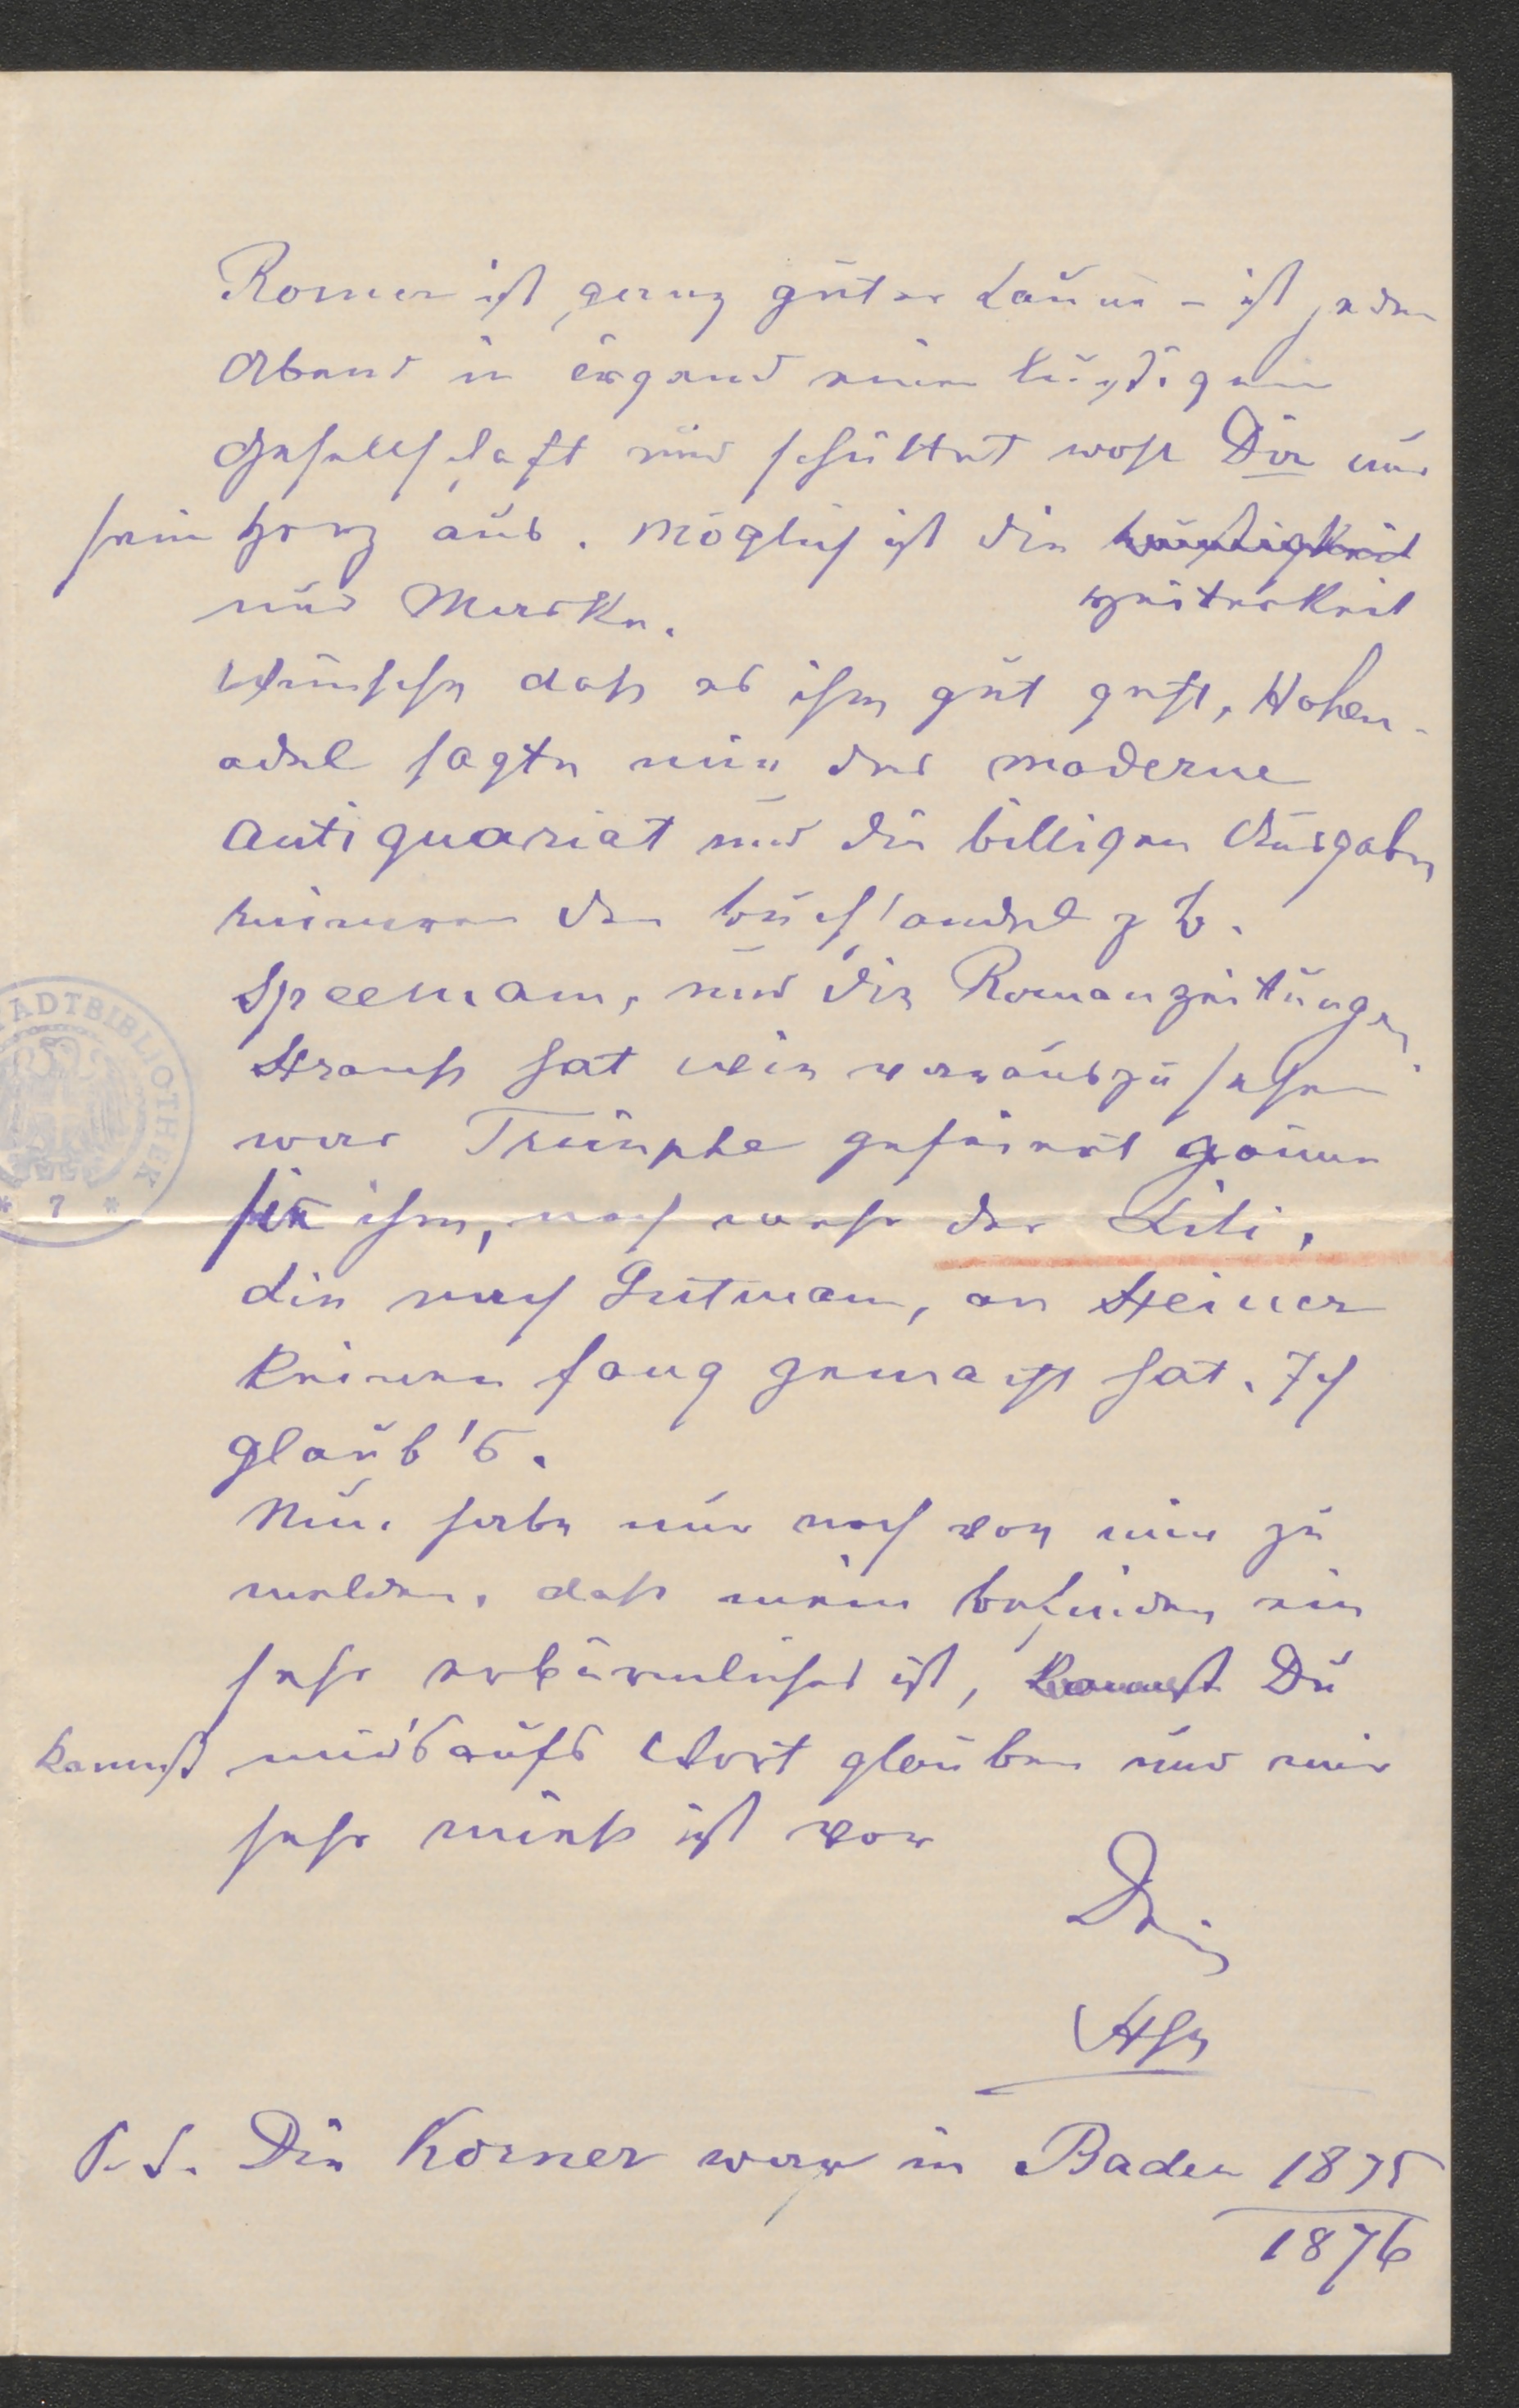 Romer ist ganz guter Laune – ist jeden
Abend in irgend einer lustigen
Gesellschaft und schüttet wohl Dir nur
sein Herz aus. Möglich ist die
Heiterkeit
nur Maske.
Wünsche daß es ihm gut geht, Hohen-
adel sagte mir das moderne
Antiquariat und die billigen Ausgaben
ruiniren den Buchhandel z B.
Speemann, und die Romanzeitungen
Strauß hat wie vorauszusehen
war Triumphe gefeiert gönne
sie ihm, noch mehr der Lili,
die nach Gutmann, an Steiner
keinen Fang gemacht hat. Ich
glaub's.
Nun habe nur noch von mir zu
melden, daß mein Befinden ein
sehr erbärmliches ist, Du
kannst mir's aufs Wort glauben und mir
sehr mieß ist vor
Dein
STADTBIBLIOTHEK
* 7 *
P. S. Die Korner war in Baden 1875
1876